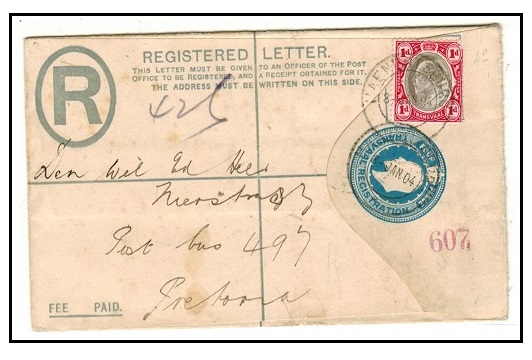 REGISTERED LETTER.
THIS LETTER MUST BE GIVEN TO AN OFFICER OF THE POST
OFFICE TO BE REGISTERED, AND A RECEIPT OBTAINED FOR IT.
THE ADDRESS MUST BE WRITTEN ON THIS SIDE.
R
425
1d 1d
1d TRANSVAAL 1d
FOUR PENCE
TRANSVAAL REGISTRATION
JAN. 04
Den Wil Ed Heer
Post bus 497
Pretoria
607
FEE PAID.